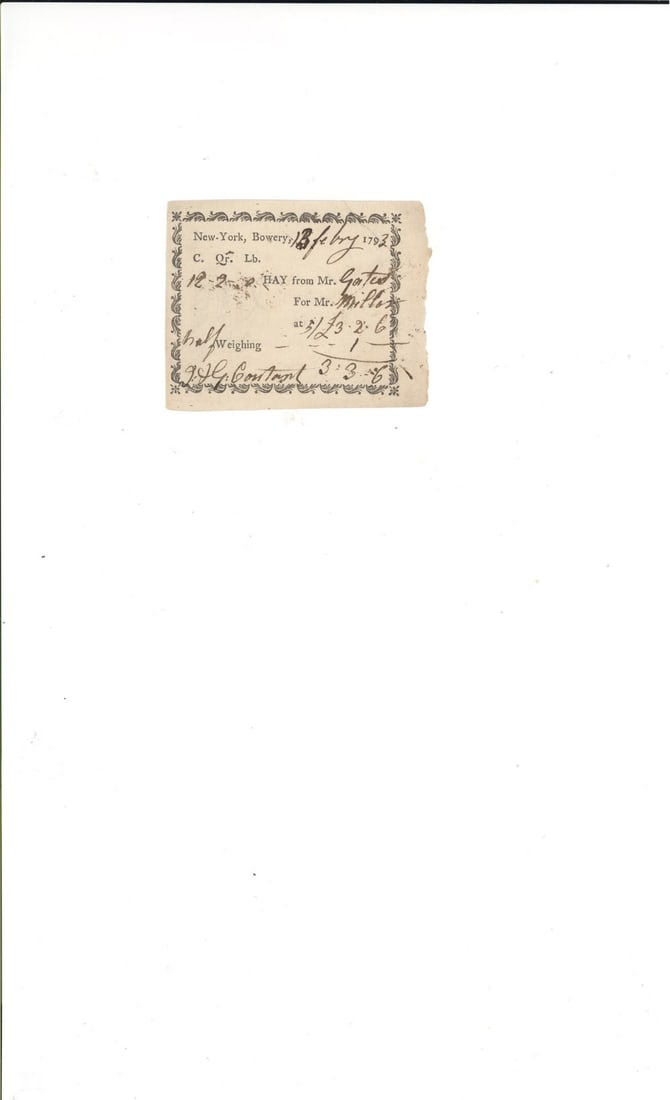 New-York, Bowery, 13 febry 1793
C. Qr. Lb.
12-2-0 HAY from Mr. Gates
For Mr. Miller
at 5/ £3-2-6
half Weighing - - - 1 -
J & G: Contant 3:3-6